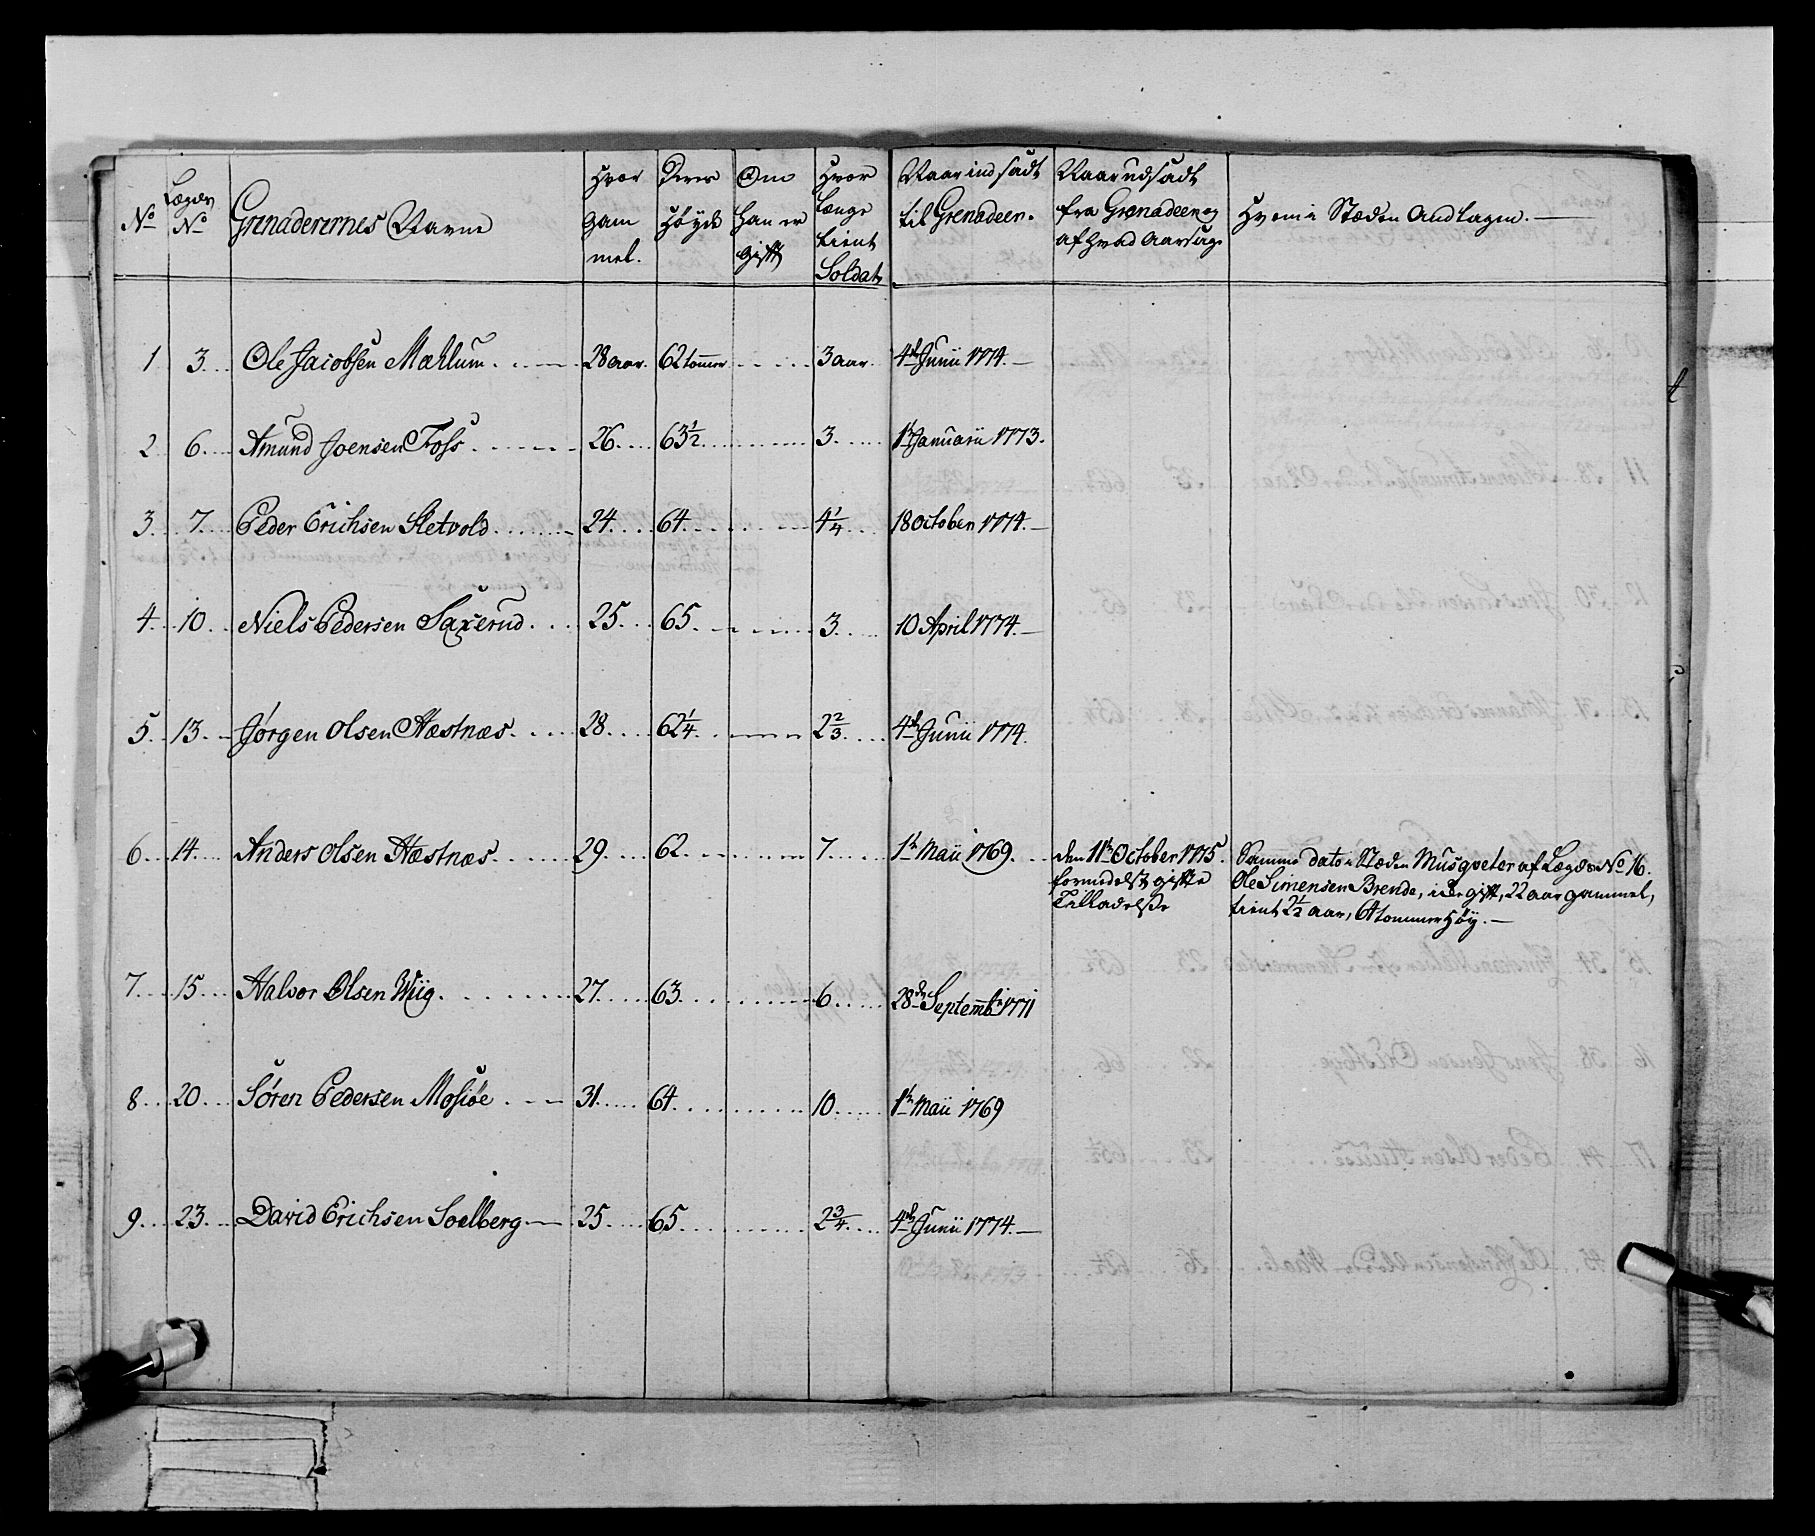 No
Lægds No
Grenaderernes Navne
Hvor gam mel.
Deres Høyde
Om han er gift
Hvor længe tient Soldat
Naar indsadt til Grenadeer.
Naar udsadt fra Grenadeer og af hvad Aarsag.
Hvem i Stæden Andtagen.
1 3 Ole Jacobsen Mæhlum 28 aar 62 tommer 3 aar 4de Junii 1774.
2 6 Amund Joensen Foss 26 63½ 3 1te Januarii 1773.
3 7 Peder Erichsen Sletvold 24 64 4¼ 18 October 1774.
4 10 Niels Pedersen Saxerud 25 65 3 10 April 1774.
5 13 Jørgen Olsen Hæstnæs 28 62¼ 2⅔ 4de Junii 1774.
6 14 Anders Olsen Hæstnæs 29 62 7 1te Maii 1769.
den 11te October 1775.
formedelst gifte
Tilladelse
Samme dato i Stæden Musqveter af Lægds No 16.
Ole Simensen Brende, icke gift, 22 aar gammel,
tient 2½ aar, 64 tommer høy.
7 15 Halvor Olsen Wiig 27 63 6 28de Septembr 1771
8 20 Søren Pedersen Mosiøe 31 64 10 1te Maii 1769
9 23 David Erichsen Soelberg 25 65 2¾ 4de Junii 1774.